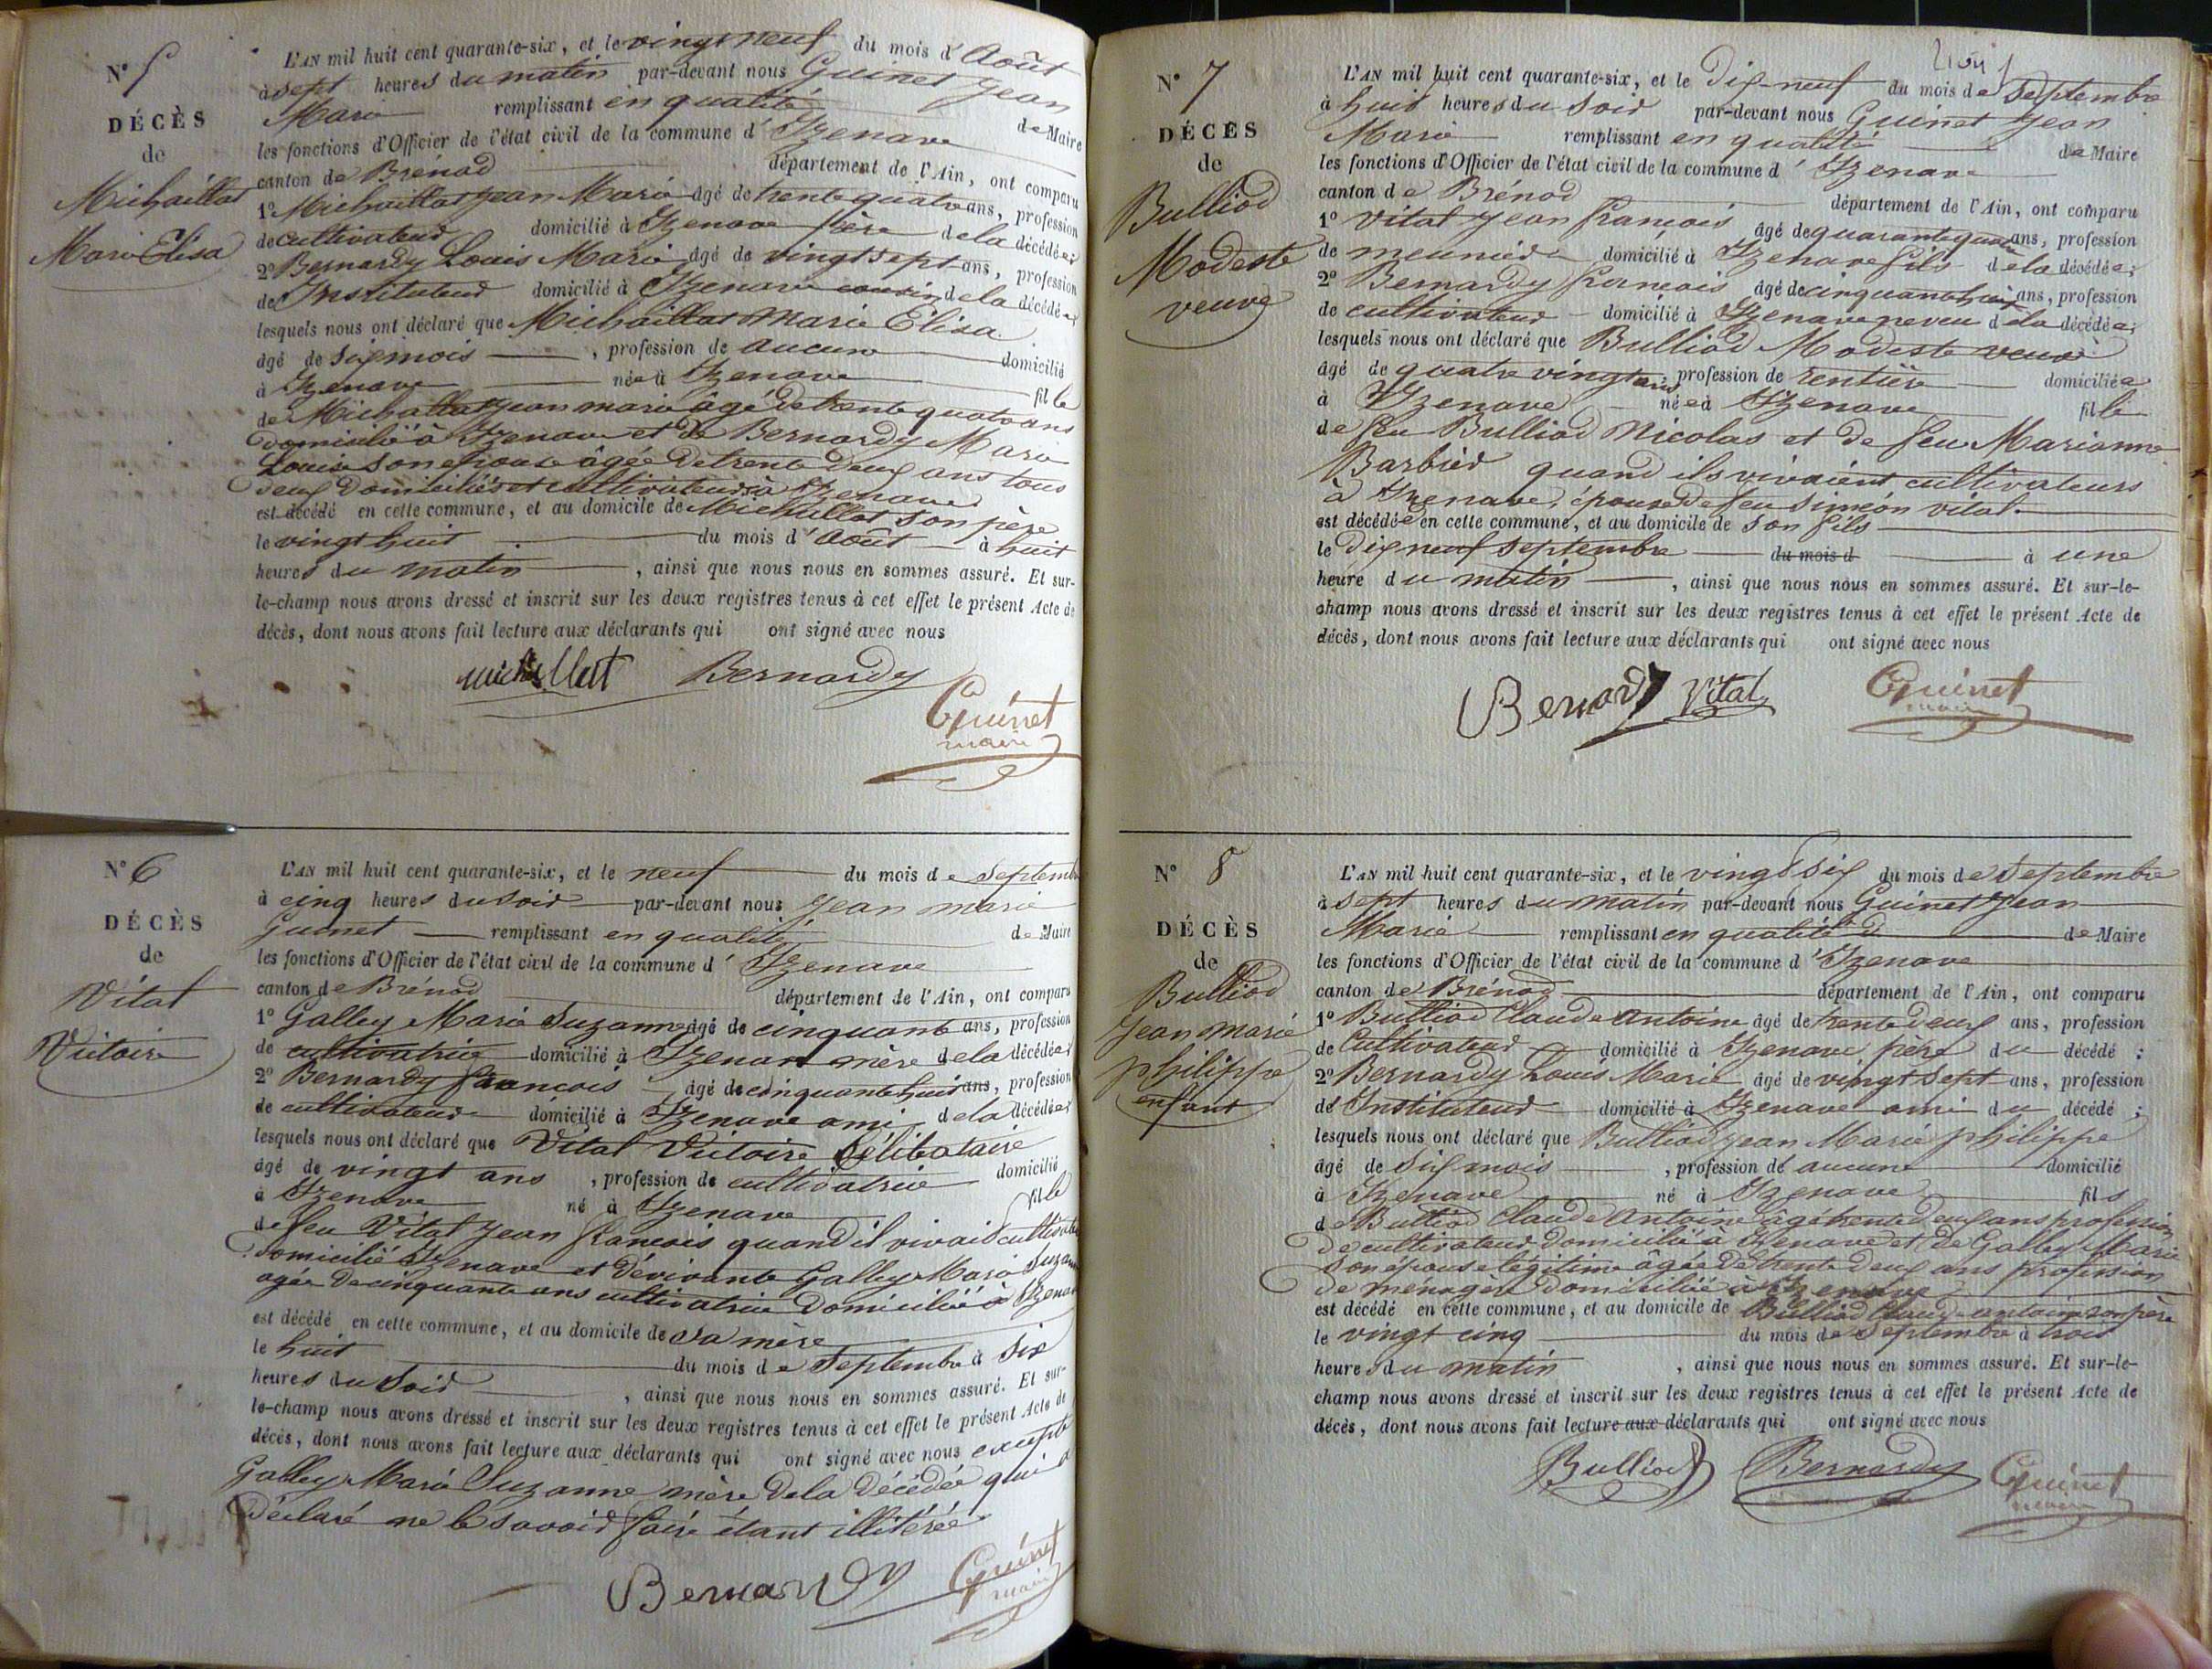 N° 5
DÉCÈS
de
Michaillat
Marie Elisa
L'AN mil huit cent quarante-six, et le vingt neuf du mois d'Août
à sept heures du matin par-devant nous Guinet Jean
Marie remplissant en qualité de Maire
les fonctions d'Officier de l'état civil de la commune d'Izenave
canton de Brénod département de l'Ain, ont comparu
1° Michaillat Jean Marie âgé de trente quatre ans, profession
de cultivateur domicilié à Izenave père de la décédée;
2° Bernardy Louis Marie âgé de vingt sept ans, profession
de Instituteur domicilié à Izenave cousin de la décédée
lesquels nous ont déclaré que Michaillat Marie Elisa
âgé de six mois, profession de aucune domicilié
à Izenave née à Izenave fille
de Michallat Jean marie âgé de trente quatre ans
domicilié à Izenave et de Bernardy Marie
Louise son épouse âgée de trente deux ans tous
deux domiciliés et cultivateurs à Izenave
est décédé en cette commune, et au domicile de Michallat son père
le vingt huit du mois d'Août à huit
heures du matin, ainsi que nous nous en sommes assuré. Et sur-
le-champ nous avons dressé et inscrit sur les deux registres tenus à cet effet le présent Acte de
décès, dont nous avons fait lecture aux déclarants qui ont signé avec nous
Michallat Bernardy
Guinet
maire
N° 6
DÉCÈS
de
Vital
Victoire
L'AN mil huit cent quarante-six, et le neuf du mois de Septembre
à cinq heures du soir par-devant nous Jean marie
Guinet remplissant en qualité de Maire
les fonctions d'Officier de l'état civil de la commune d'Izenave
canton de Brénod département de l'Ain, ont comparu
1° Galley Marie Suzanne âgé de cinquante ans, profession
de cultivatrice domicilié à Izenave mère de la décédée;
2° Bernardy francois âgé de cinquante huit ans, profession
de cultivateur domicilié à Izenave ami de la décédée;
lesquels nous ont déclaré que Vital Victoire Célibataire
âgé de vingt ans, profession de cultivatrice domicilié
à Izenave né à Izenave fille
de feu Vital Jean francois quand il vivait cultivateur
domicilié Izenave et de vivante Galley Marie Suzanne
agée de cinquante ans cultivatrice domiciliée à Izenave
est décédé en cette commune, et au domicile de sa mère
le huit du mois de Septembre à six
heures du soir, ainsi que nous nous en sommes assuré. Et sur-
le-champ nous avons dressé et inscrit sur les deux registres tenus à cet effet le présent Acte de
décès, dont nous avons fait lecture aux déclarants qui ont signé avec nous excepté
Galley Marie Suzanne mère de la décédée qui a
déclaré ne le savoir faire étant illitérée
Bernardy Guinet
maire
N° 7
DÉCÈS
de
Bulliod
Modeste
veuve
L'AN mil huit cent quarante-six, et le dix-neuf du mois de Septembre
à huit heures du soir par-devant nous Guinet Jean
Marie remplissant en qualité de Maire
les fonctions d'Officier de l'état civil de la commune d'Izenave
canton de Brénod département de l'Ain, ont comparu
1° Vital Jean francois âgé de quarante quatre ans, profession
de meunier domicilié à Izenave fils de la décédée;
2° Bernardy francois âgé de cinquante huit ans, profession
de cultivateur domicilié à Izenave neveu de la décédée;
lesquels nous ont déclaré que Bulliod Modeste veuve
âgé de quatre vingt ans, profession de rentière domiciliée
à Izenave née à Izenave fille
de feu Bulliod Nicolas et de feue Marianne
Barbier quand ils vivaient cultivateurs
à Izenave, épouse de feu Siméon vital
est décédée en cette commune, et au domicile de son fils
le dix neuf septembre du mois d à une
heure du matin, ainsi que nous nous en sommes assuré. Et sur-le-
champ nous avons dressé et inscrit sur les deux registres tenus à cet effet le présent Acte de
décès, dont nous avons fait lecture aux déclarants qui ont signé avec nous
Bernardy Vital Guinet
maire
N° 8
DÉCÈS
de
Bulliod
Jean marie
philippe
enfant
L'AN mil huit cent quarante-six, et le vingt six du mois de Septembre
à sept heures du matin par-devant nous Guinet Jean
Marie remplissant en qualité d de Maire
les fonctions d'Officier de l'état civil de la commune d'Izenave
canton de Brénod département de l'Ain, ont comparu
1° Bulliod Claude Antoine âgé de trente deux ans, profession
de Cultivateur domicilié à Izenave père du décédé;
2° Bernardy Louis Marie âgé de vingt sept ans, profession
de Instituteur domicilié à Izenave ami du décédé;
lesquels nous ont déclaré que Bulliod Jean Marie philippe
âgé de six mois, profession de aucune domicilié
à Izenave né à Izenave fils
de Bulliod Claude Antoine âgé trente deux ans profession
de cultivateur domicilié à Izenave et de Galley Marie
son épouse légitime âgée de trente deux ans profession
de ménagère domiciliée à Izenave
est décédé en cette commune, et au domicile de Bulliod Claude antoine son père
le vingt cinq du mois de Septembre à trois
heures du matin, ainsi que nous nous en sommes assuré. Et sur-le-
champ nous avons dressé et inscrit sur les deux registres tenus à cet effet le présent Acte de
décès, dont nous avons fait lecture aux déclarants qui ont signé avec nous
Bulliod Bernardy Guinet
maire